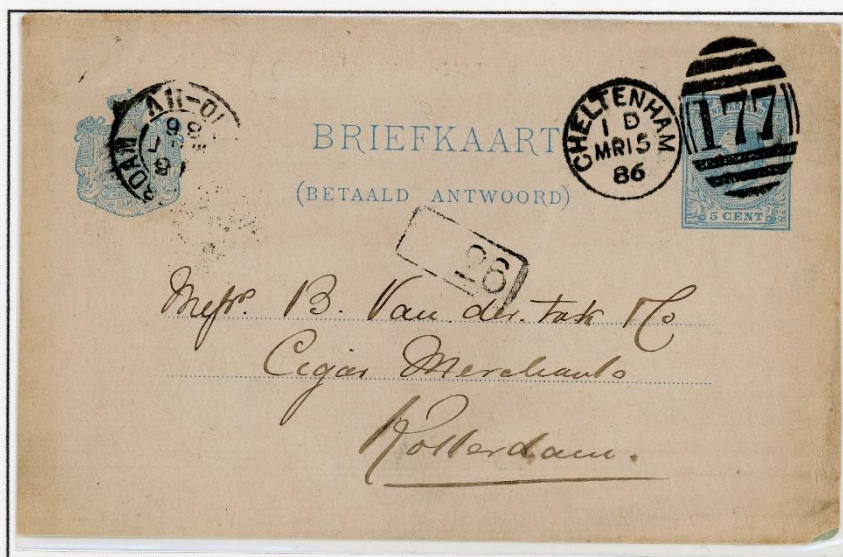 BRIEFKAART
(BETAALD ANTWOORD)
CHELTENHAM
1 D
MR 15
86
177
5 CENT
26
Messrs. B. Van der Tak & Co
Cigar Merchants
Rotterdam.